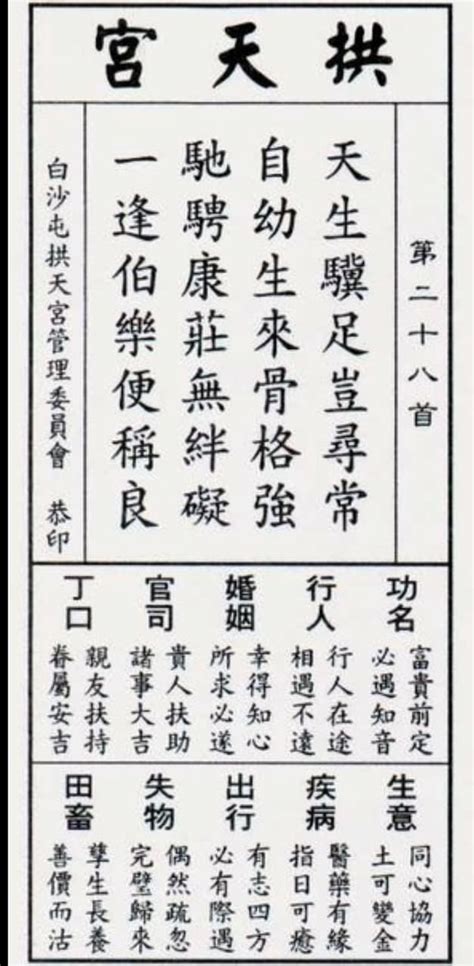 拱天宮
第二十八首
天生驥足豈尋常
自幼生來骨格強
馳騁康莊無絆礙
一逢伯樂便稱良
白沙屯拱天宮管理委員會 恭印
功名
富貴前定
必遇知音
行人
行人在途
相遇不遠
婚姻
幸得知心
所求必遂
官司
貴人扶助
諸事大吉
丁口
親友扶持
眷屬安吉
生意
同心協力
土可變金
疾病
醫藥有緣
指日可癒
出行
有志四方
必有際遇
失物
偶然疏忽
完璧歸來
田畜
孳生長養
善價而沽